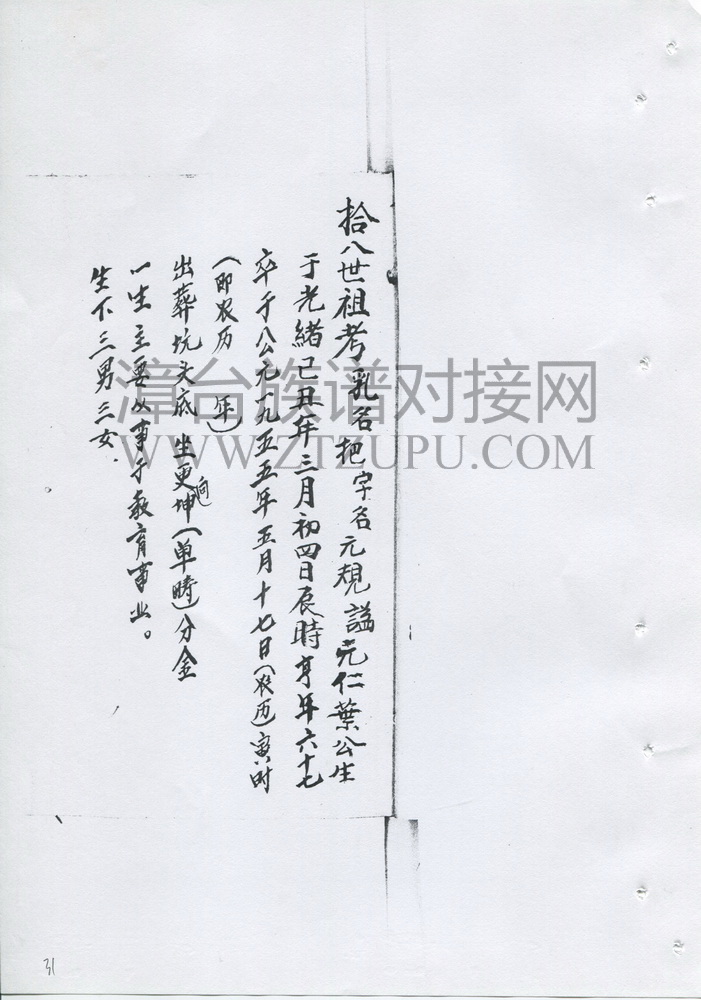 拾八世祖考乳名把字名元規謚元仁葉公生
于光緒己丑年三月初四日辰時享年六十七
卒于公元一九五五年五月十七日(农历)寅时
(即农历 年)
出葬坑头底 坐更坤向(单時)分金
一生主要从事于教育事业。
生下三男三女.
漳台族谱对接网
WWW.ZTZUPU.COM
31